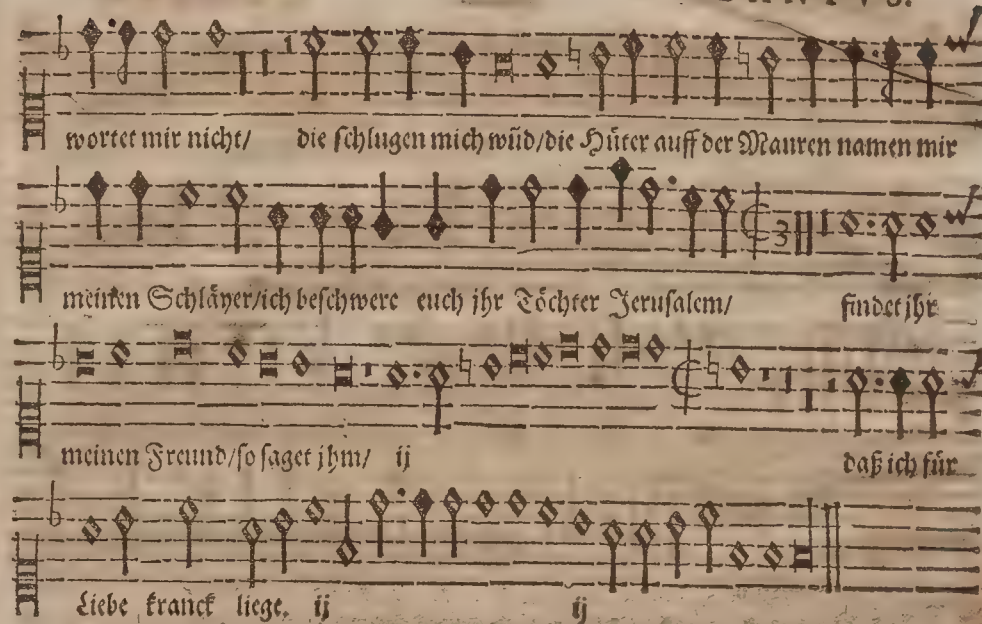 wortet mir nicht/ die schlugen mich wůd/die Hüter auff der Mauren namen mir
meinen Schläyer/ich beschwere euch jhr Töchter Jerusalem/ findet jhr
3
meinen Freund/so saget jhm/ ij daß ich für
Liebe kranck liege. ij ij